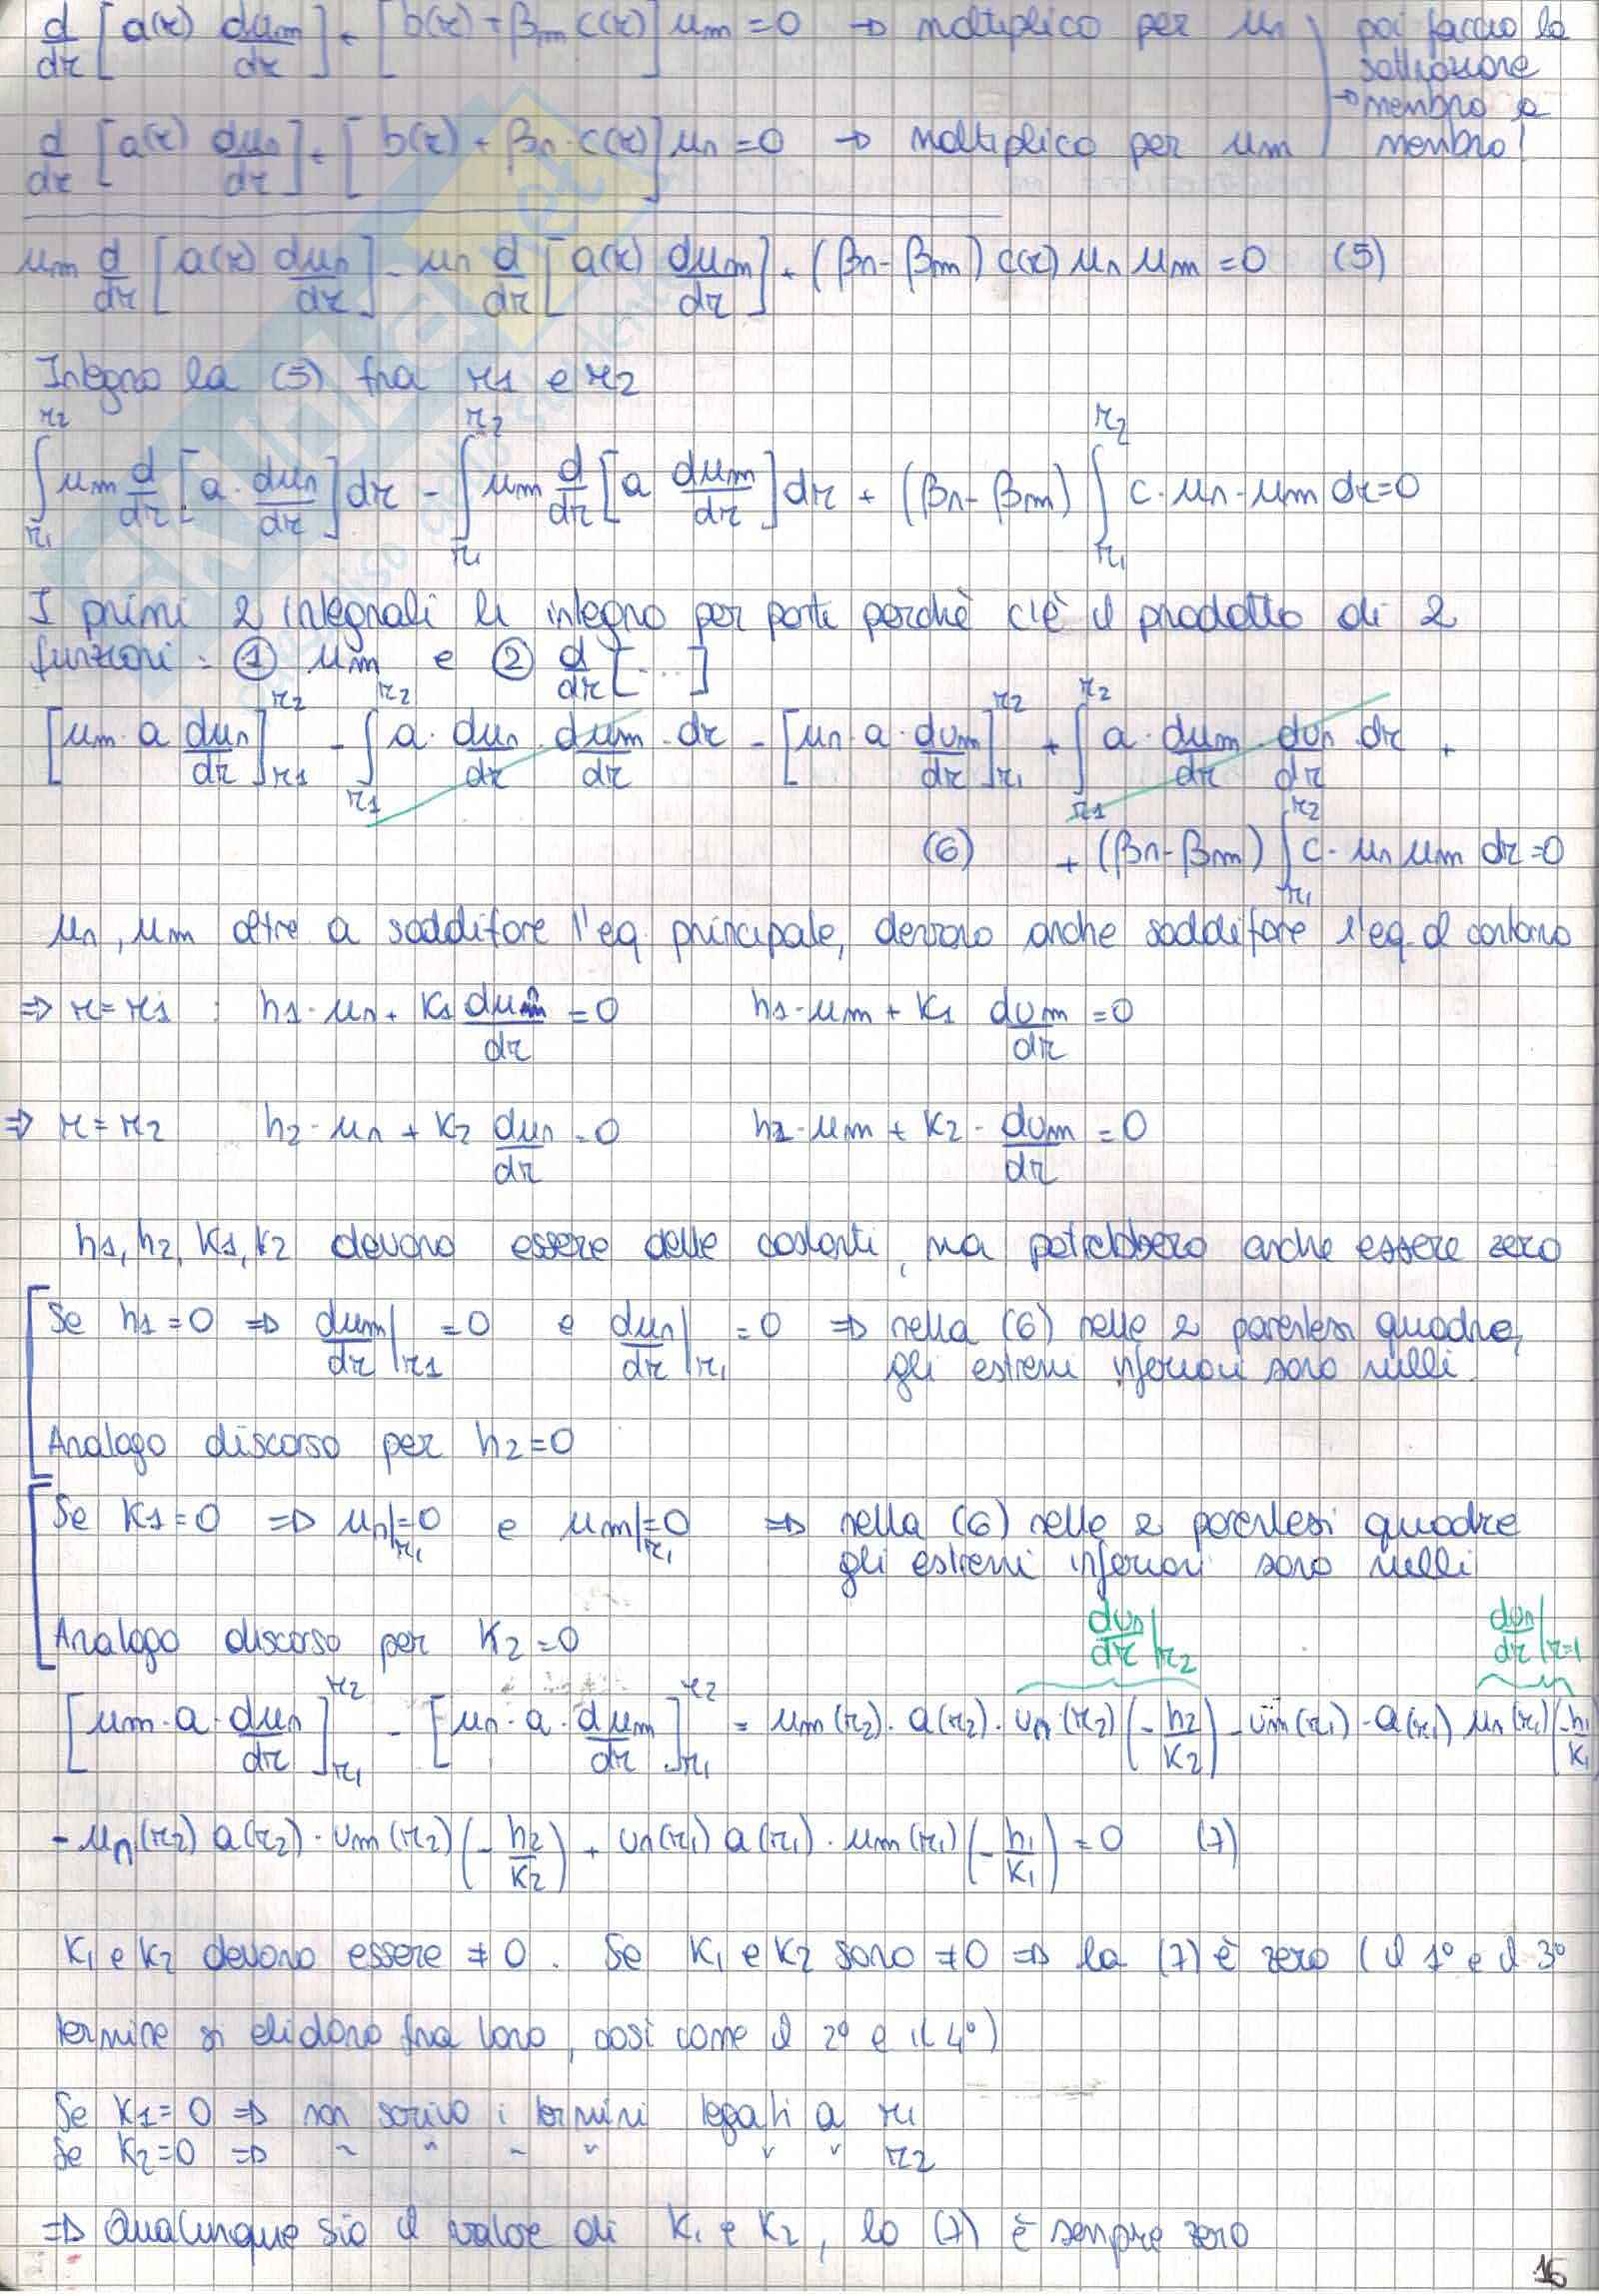 d/dr [a(r) du_m/dr] + [b(r) + β_m c(r)] u_m = 0 ⇒ moltiplico per u_n
poi faccio la sottrazione
→ membro a membro!
d/dr [a(r) du_n/dr] + [b(r) + β_n · c(r)] u_n = 0 ⇒ moltiplico per u_m
u_m d/dr [a(r) du_n/dr] - u_n d/dr [a(r) du_m/dr] + (β_n - β_m) c(r) u_n u_m = 0 (5)
Integro la (5) fra r1 e r2
∫_{r1}^{r2} u_m d/dr [a · du_n/dr] dr - ∫_{r1}^{r2} u_m d/dr [a du_m/dr] dr + (β_n - β_m) ∫_{r1}^{r2} c · u_n · u_m dr = 0
I primi 2 integrali li integro per parti perchè c'è il prodotto di 2
funzioni: ① u_m e ② d/dr [...]
[u_m · a du_n/dr]_{r1}^{r2} - ∫_{r1}^{r2} a · du_n/dr · du_m/dr · dr - [u_n · a · du_m/dr]_{r1}^{r2} + ∫_{r1}^{r2} a · du_m/dr · du_n/dr dr +
(6) + (β_n - β_m) ∫_{r1}^{r2} c · u_n u_m dr = 0
u_n, u_m oltre a soddisfare l'eq. principale, devono anche soddisfare l'eq. al contorno
⇒ r = r1 : h1 · u_n + K1 du_n/dr = 0 h1 · u_m + K1 du_m/dr = 0
⇒ r = r2 h2 · u_n + K2 du_n/dr = 0 h2 · u_m + K2 · du_m/dr = 0
h1, h2, K1, K2 devono essere delle costanti, ma potrebbero anche essere zero
Se h1 = 0 ⇒ du_m/dr |r1 = 0 e du_n/dr |r1 = 0 ⇒ nella (6) nelle 2 parentesi quadre,
gli estremi inferiori sono nulli.
Analogo discorso per h2 = 0
Se K1 = 0 ⇒ u_n|r1 = 0 e u_m|r1 = 0 ⇒ nella (6) nelle 2 parentesi quadre
gli estremi inferiori sono nulli
Analogo discorso per K2 = 0
du_n/dr |r2 du_n/dr |r=1
[u_m · a · du_n/dr]_{r1}^{r2} - [u_n · a · du_m/dr]_{r1}^{r2} = u_m(r2) · a(r2) · u_n · (r2) (-h2/K2) - u_m(r1) · a(r1) u_n(r1) (-h1/K1)
- u_n(r2) a(r2) · u_m(r2) (-h2/K2) + u_n(r1) a(r1) · u_m(r1) (-h1/K1) = 0 (7)
K1 e K2 devono essere ≠ 0. Se K1 e K2 sono ≠ 0 ⇒ la (7) è zero (il 1° e il 3°
termine si elidono fra loro, così come il 2° e il 4°)
Se K1 = 0 ⇒ non scrivo i termini legati a r1
Se K2 = 0 ⇒ " " " " " " r2
⇒ Qualunque sia il valore di K1 e K2, la (7) è sempre zero
16